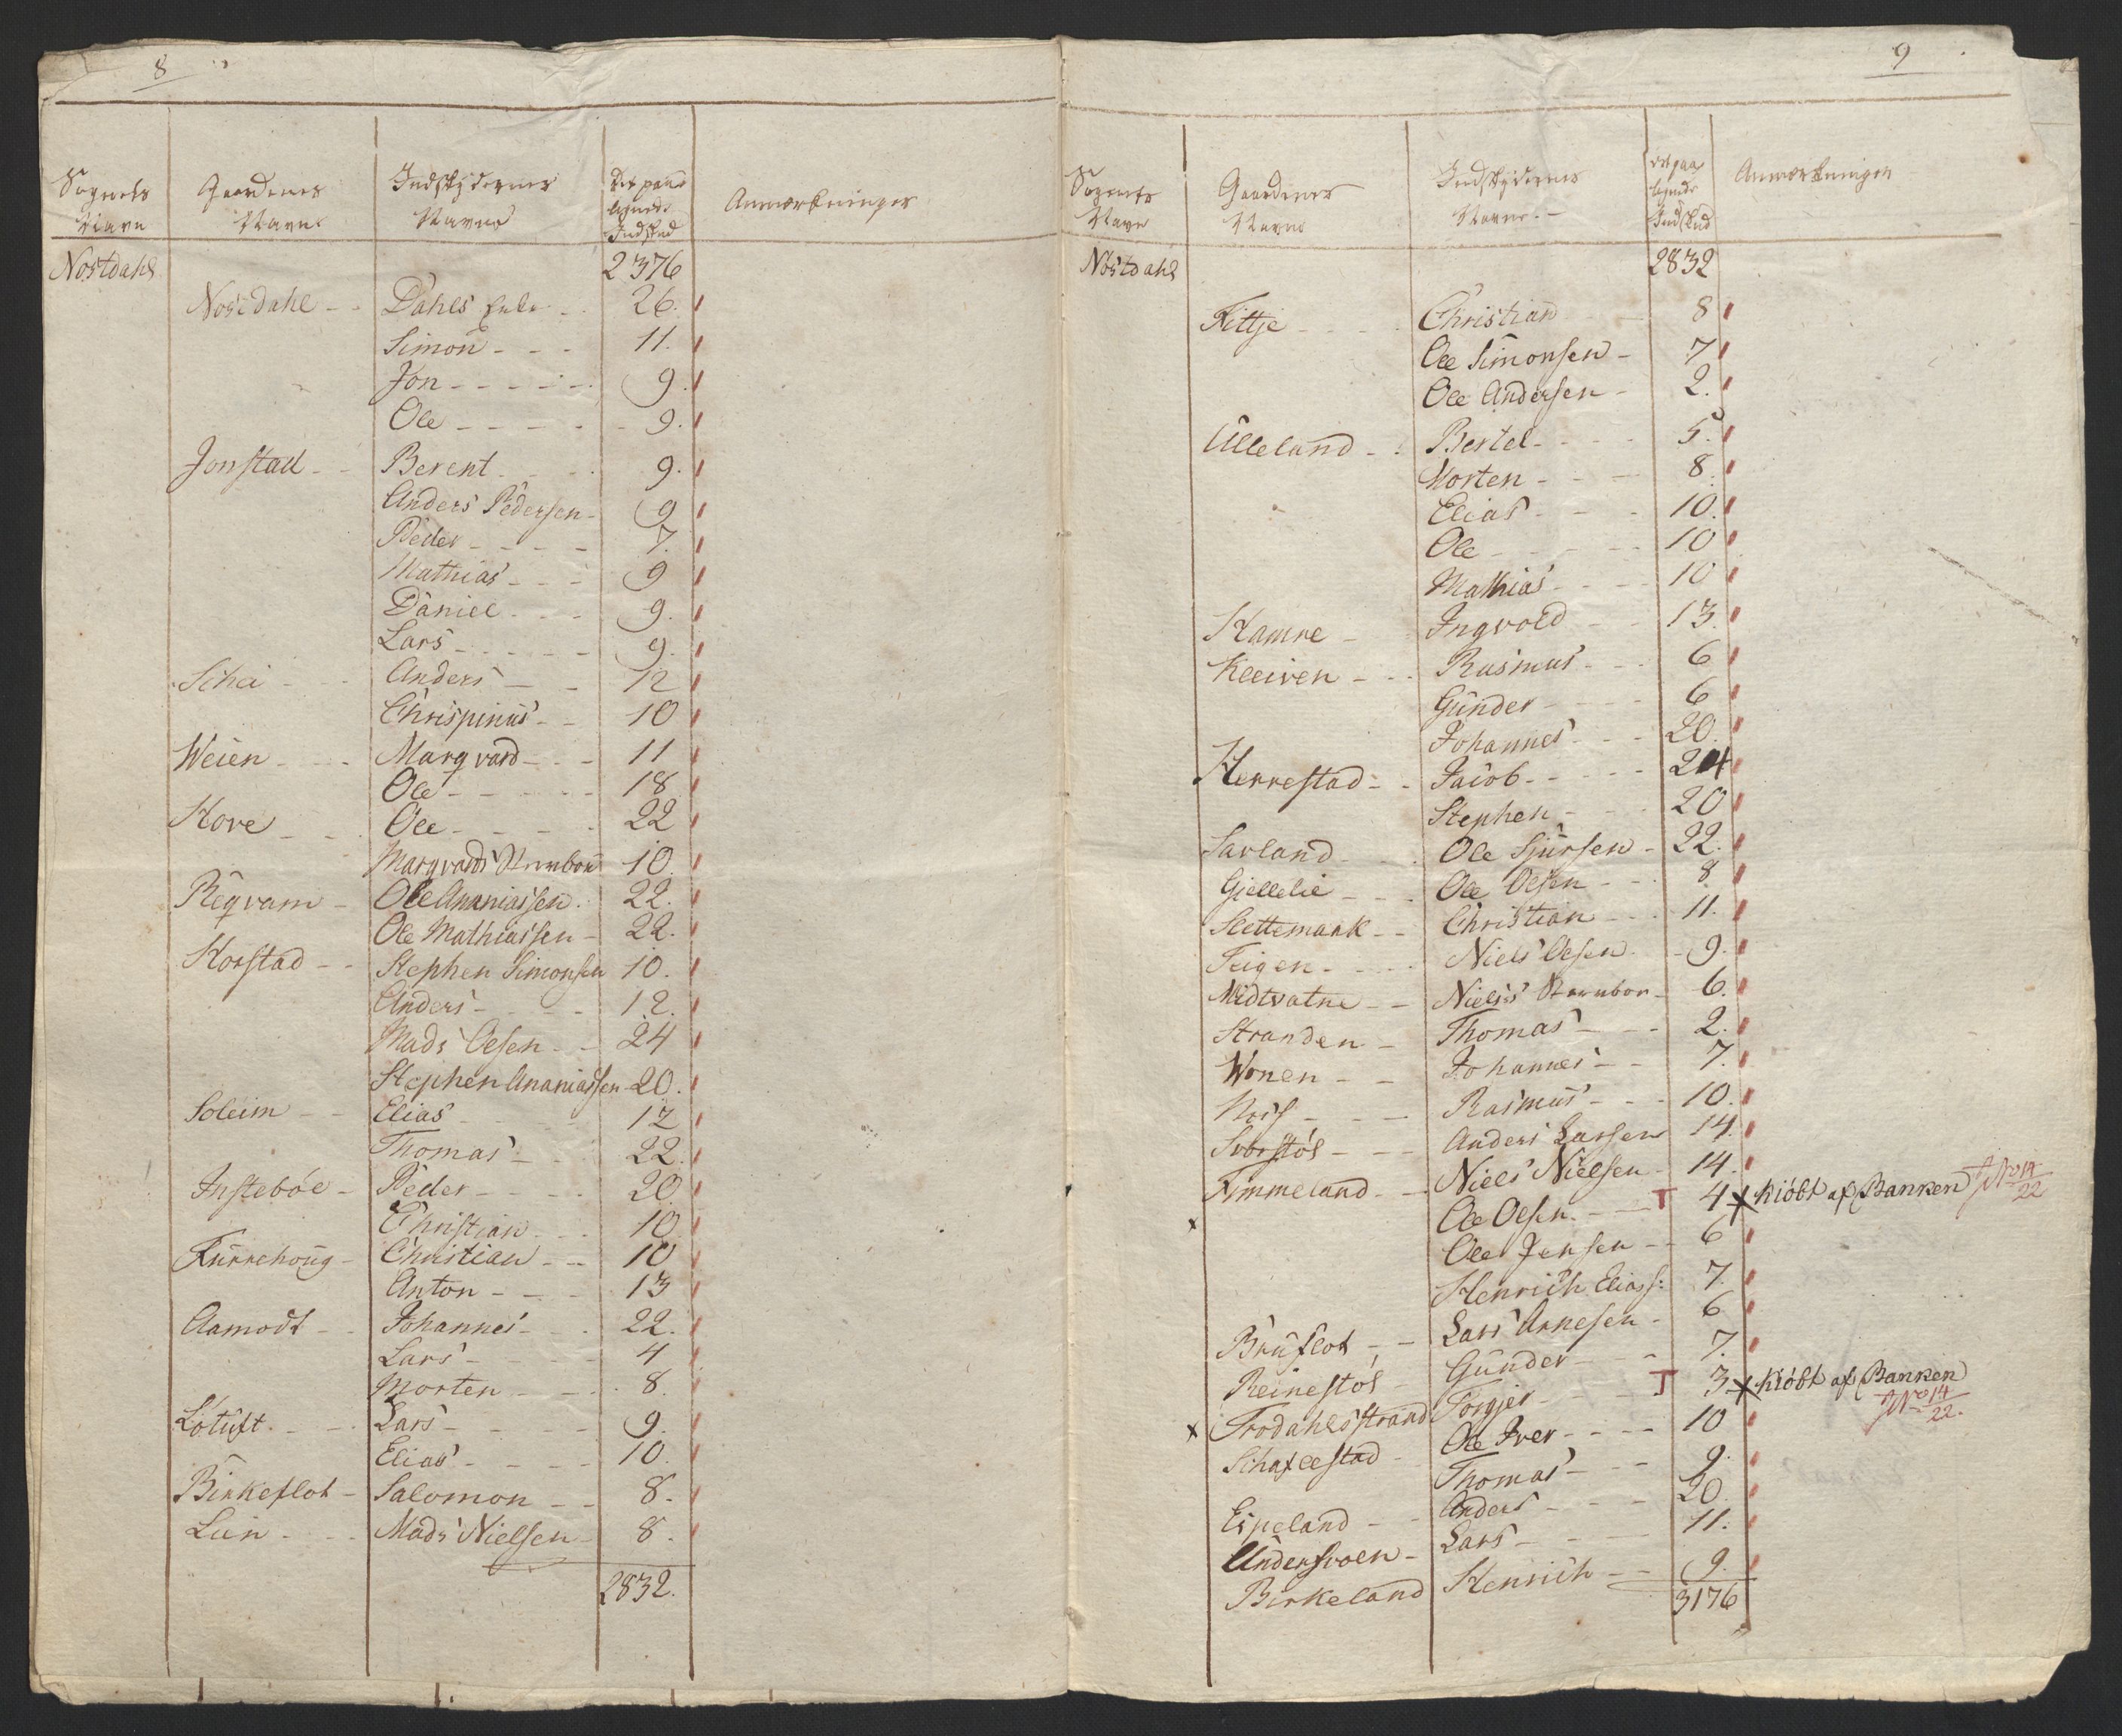 8
Sognets Navn
Gaardenes Navne
Indskydernes Navne
Det paalignede Indskud
Anmærkninger
Nostdahl 2376
Nostdahl - - Dahls Enke - - 26.
Simon - - - 11.
Jon - - - - - 9.
Ole - - - - - 9.
Jonstad - - Berent - - - 9.
Anders Pedersen - 9
Peder - - - - 7.
Mathias - - - 9
Daniel - - - 9.
Lars - - - - - 9.
Schei - - - Anders - - 12
Chrispinus - - 10
Weien - - - Marqvard - - - 11
Ole - - - - - 18
Hove - - - Ole - - - - - 22
Marqvards 10.
Reqvam - Ole Ananiassen. 22.
Ole Mathiassen - 22.
Horstad - - Stephen Simonsen 10.
Anders - - - - 12.
Mads Olsen - - 24
Stephen Ananiassen - 20.
Soleim - - Elias - - - - 12
Thomas - - - 22.
Instebøe - Peder - - - - 20.
Christian - - - 10
Kurrehoug - Christian - - - 10
Anton - - - 13
Aamodt - - Johannes - - - 22.
Lars - - - - - 4
Morten - - - - 8.
Løtuft - - - Lars - - - - 9.
Elias - - - - 10.
Birkeflot - Salomon - - 8.
Lun - - - Mads Nielsen - 8.
2832.
9
Sognets Navn
Gaardenes Navne
Indskydernes Navne. -
det paalignede Indskud
Anmærkninger
Nöstdahl 2832
Kittje - - - - Christian - - 8
Ole Simonsen - 7
Ole Andersen - 2.
Ulleland - - Bertel - - - - 5.
Morten - - - 8.
Elias - - - 10.
Ole - - - - - 10
Mathias - - - - 10
Hamre - Ingvold - - - 13.
Kleiven - - - Rasmus - - - 6
Gunder - - - - 6
Johannes - - - 20.
Herrestad - - Jacob - - - - - 24
Stephen - - - 20
Sarland - - - Ole Sjursen - 22.
Gjellelie - - - Ole Olsen - - 8
Slettemark - - Christian - - - 11.
Teigen - - - - Niels Olsen - - 9.
Midtvatne - - Niels's - 6.
Stranden - Thomas - - - 2.
Wonen - - Johannes - - 7.
- - - Rasmus - - - 10.
Svorstøl - - - Anders Larsen 14.
Kimmeland - - Niels Nielsen - 14.
x Ole Olsen. - - T 4 x Kiöbt af Banken No 14/22
Ole Jensen - - 6
Henrich Eliass: 7.
Bruflot - - Lars Arnesen - 6
Reinestøl - Gunder - - - 7.
x Trodahlsstrand Torger - - - T 3 x Kiöbt af Banken No 14/22.
Schaflestad - Ole Iver - - - - 10
Thomas - - - 9.
Espeland - - Anders - - - 20.
Undersvoen - Lars - - - - 11.
Birkeland Henrich - - 9.
3176